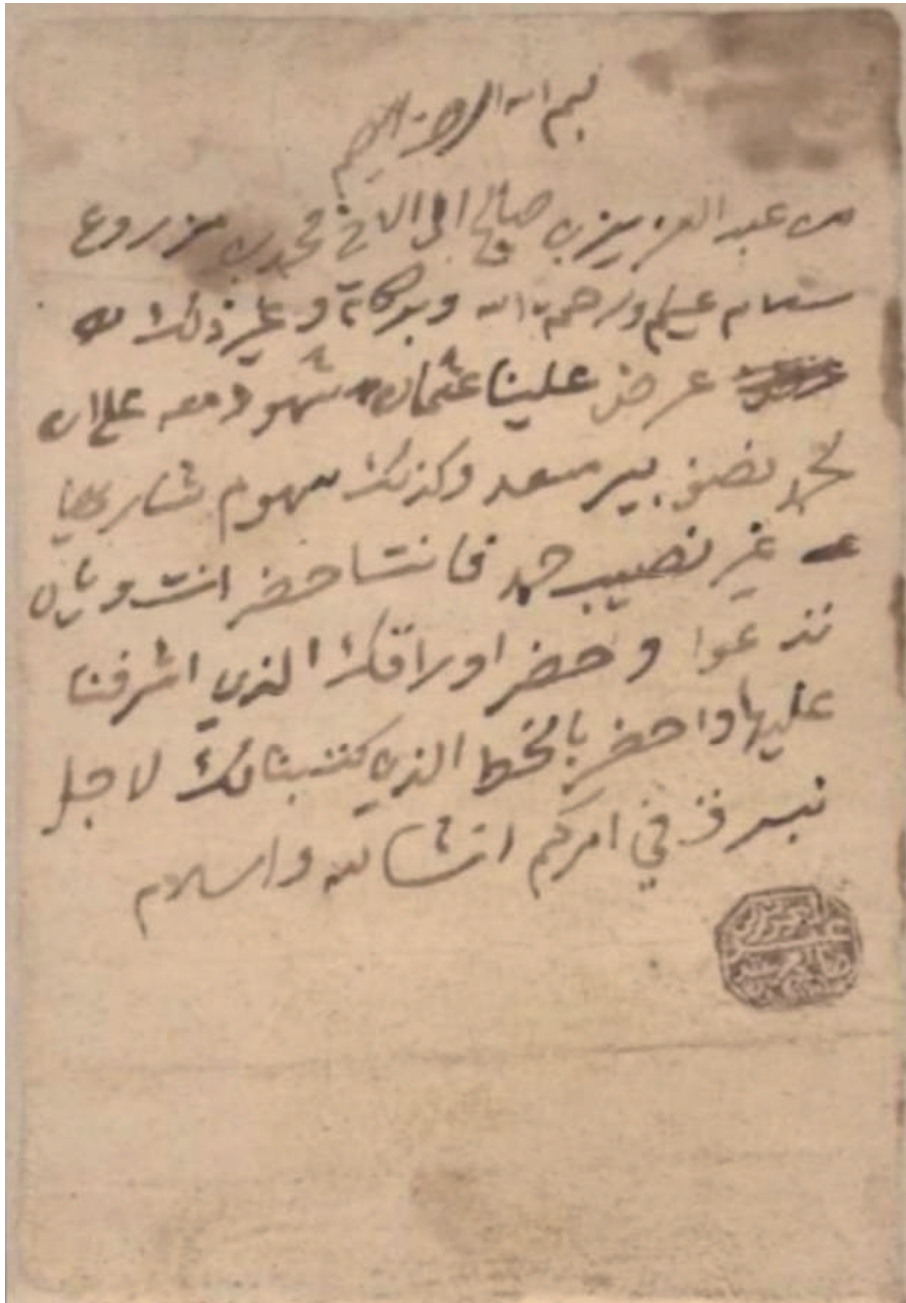 بسم الله الرحمن الرحيم
من عبد العزيز بن صالح الى الاخ محمد بن مزروع
سلام عليكم ورحمة الله وبركاته وغير ذلك
عرض علينا عثمان شهود معه على ان
لحمد نصف بير سعد وكذلك سهوم
غير نصيب حمد فانتا حضر انت
تدعوا وحضر اوراقك الذي اشرفنا
عليها واحضر بالخط الذي كتبنا لك لاجل
في امركم انشالله واسلام